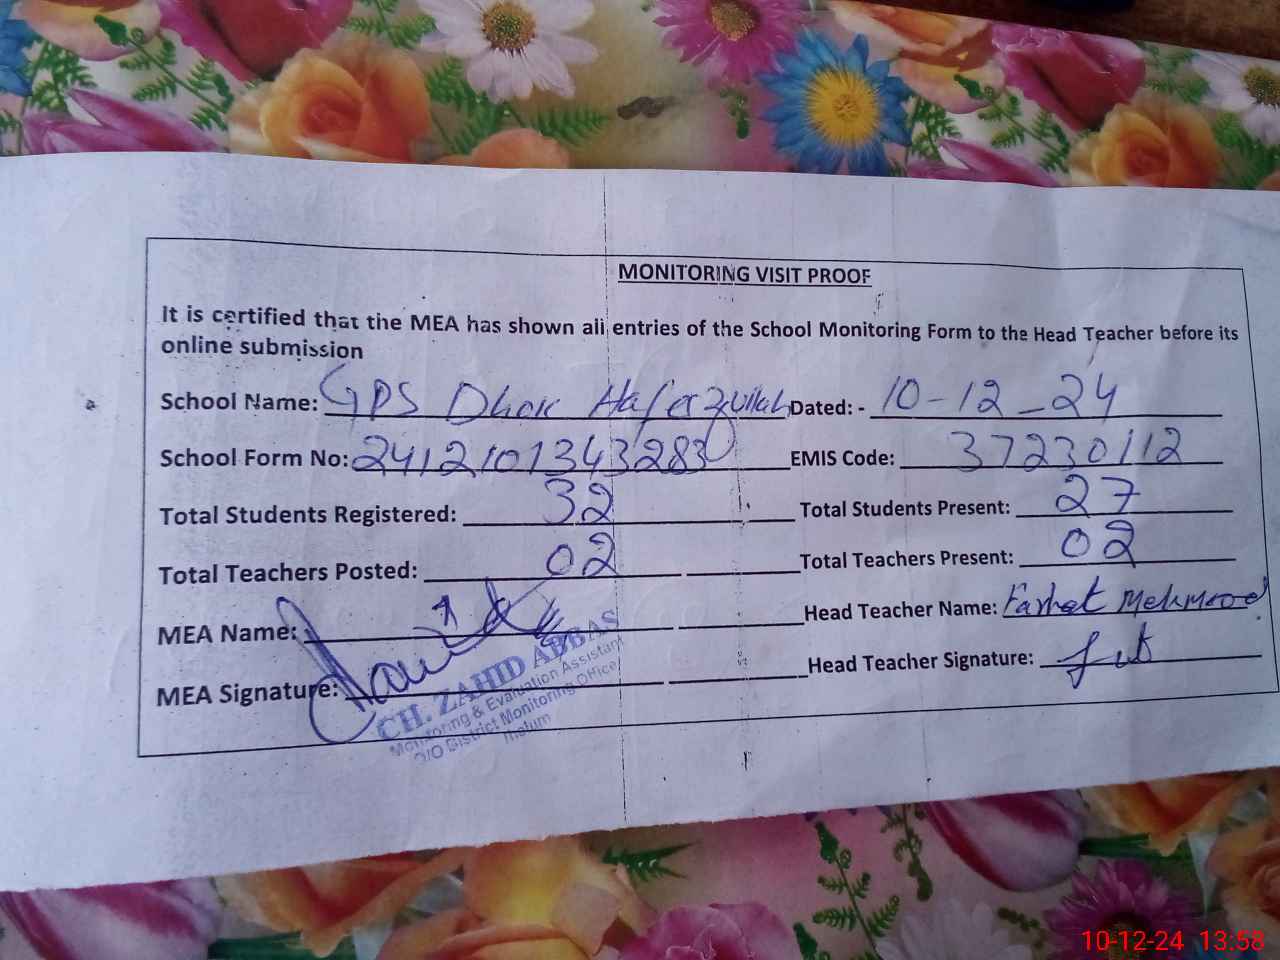 MONITORING VISIT PROOF
It is certified that the MEA has shown all entries of the School Monitoring Form to the Head Teacher before its
online submission
School Name: GPS Dhok Dated: - 10-12-24
School Form No: 2412101343283 EMIS Code: 37230112
Total Students Registered: 32 Total Students Present: 27
Total Teachers Posted: 02 Total Teachers Present: 02
MEA Name: Head Teacher Name: Farhat Mehmood
MEA Signature: Head Teacher Signature:
CH. ZAHID ABBAS
Monitoring & Evaluation Assistant
O/O District Monitoring Office
10-12-24 13:58